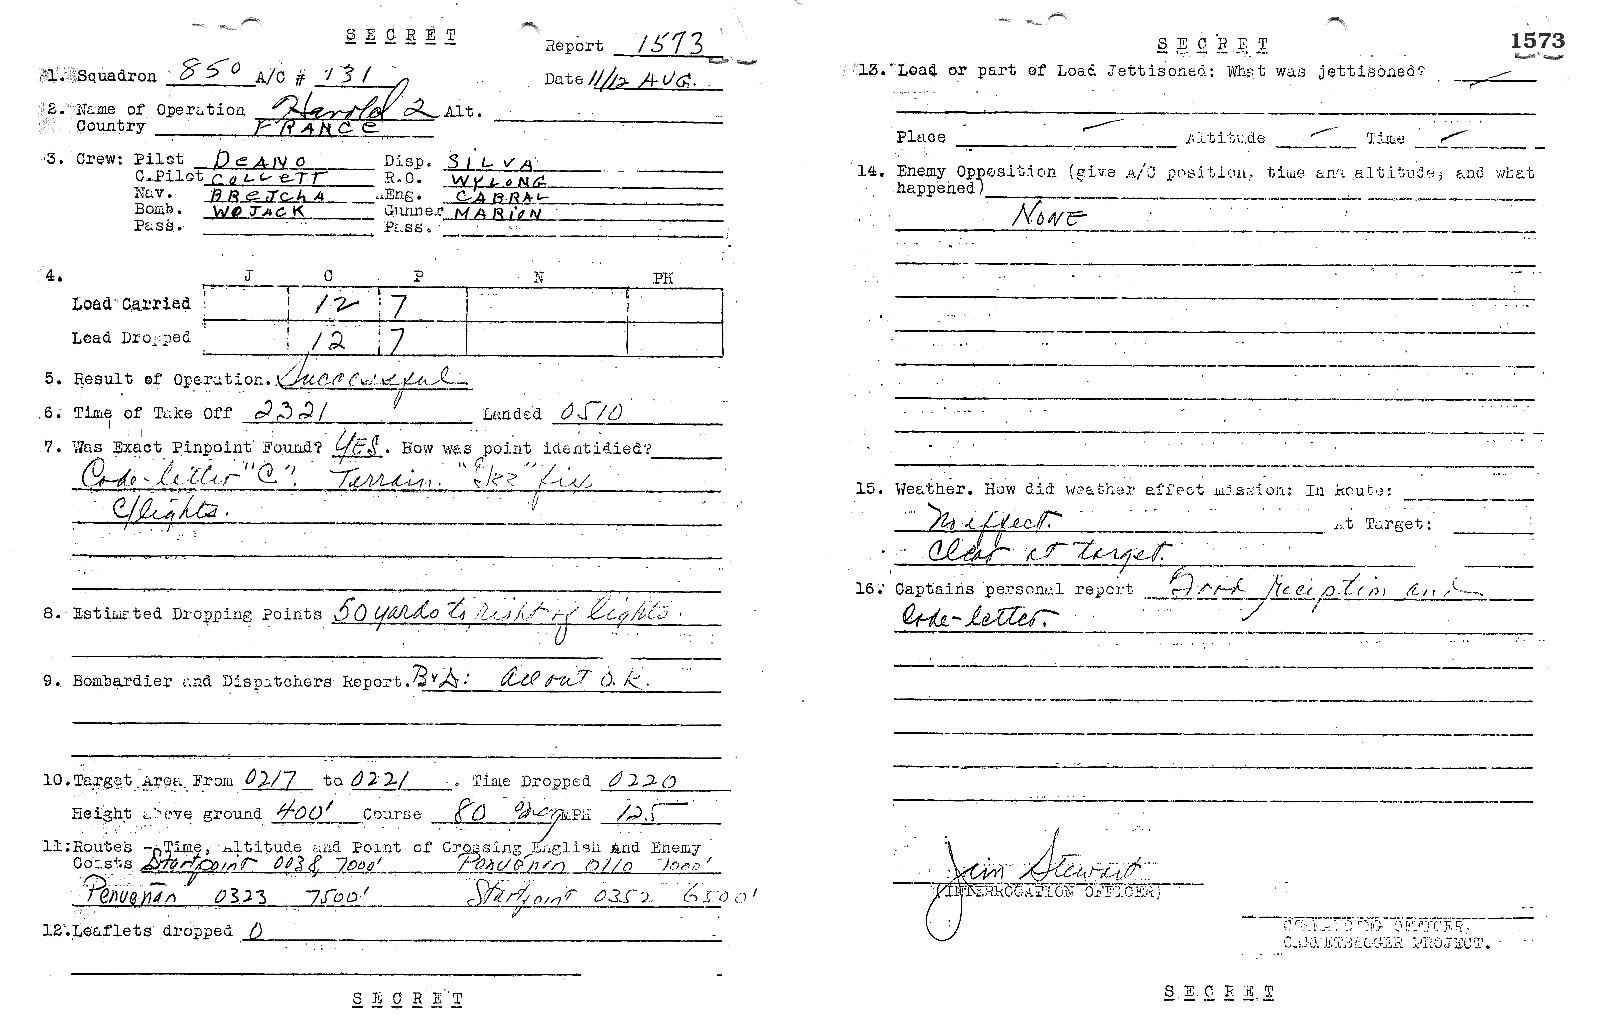 S E C R E T
Report 1573
1. Squadron 850 A/C # 131 Date 11/12 AUG.
2. Name of Operation Harold 2 Alt.
Country FRANCE
3. Crew: Pilot DEANO Disp. SILVA
C.Pilot COLLETT R.O. WYLONG
Nav. BREJCHA Eng. CABRAL
Bomb. WOJACK Gunner MARION
Pass. Pass.
4. J C P N PH
Load Carried 12 7
Load Dropped 12 7
5. Result of Operation. Successful
6. Time of Take Off 2321 Landed 0510
7. Was Exact Pinpoint Found? YES. How was point identidied?
Code-letter "C". Terrain.
lights.
8. Estimated Dropping Points 50 yards to right of lights.
9. Bombardier and Dispatchers Report. B & D: All out O.K.
10. Target Area From 0217 to 0221. Time Dropped 0220
Height above ground 400' Course 80 MPH 125
11. Routes - Time, Altitude and Point of Crossing English and Enemy
Coasts Startpoint 0038, 7000' Penvenan 0110 7000'
Penvenan 0323 7500' Startpoint 0352 6500'
12. Leaflets dropped 0
S E C R E T
S E C R E T
1573
13. Load or part of Load Jettisoned: What was jettisoned? —
Place — Altitude — Time —
14. Enemy Opposition (give A/C position, time and altitude, and what
happened)
NONE
15. Weather. How did weather effect mission: In Route:
No effect. At Target:
Clear at target.
16. Captains personal report Good reception and
code-letter.
Jim Stewart
(INTERROGATION OFFICER)
COMMANDING OFFICER,
CARPETBAGGER PROJECT.
S E C R E T